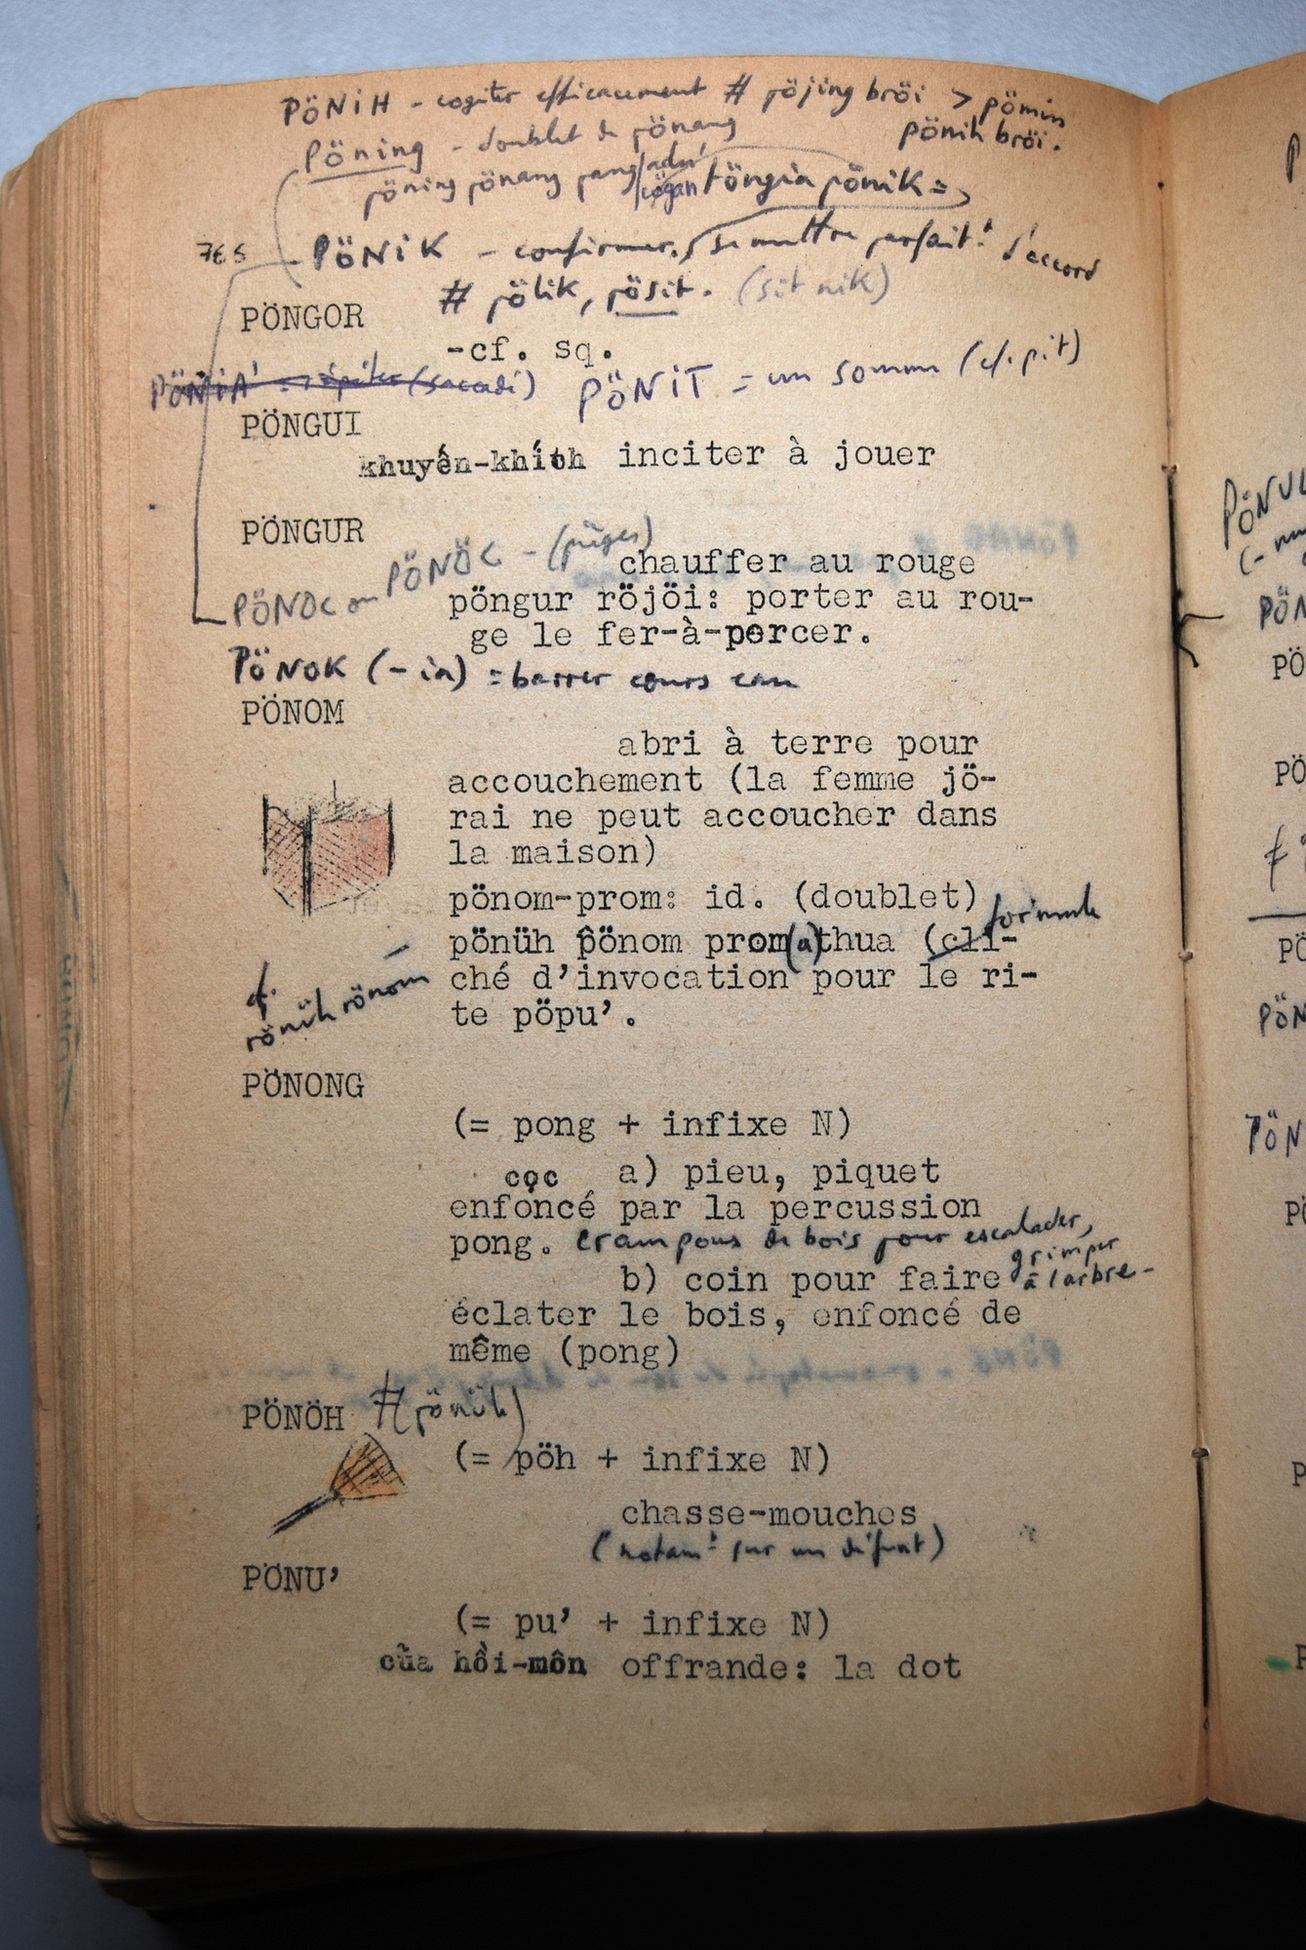 PÖNIH - cogiter efficacement # pöjing bröi > pömin
pönih bröi.
Pöning - doublet de pönang
pöning pönang pang
töngia pönik =
766
PÖNIK - confirmer, se mettre parfait.t d'accord
# pölik, pösit. (sit nik)
PÖNGOR
-cf. sq.
PÖNIT = un somme (cf. pit)
PÖNGUI
khuyến-khích inciter à jouer
PÖNGUR
PÖNÖC - (pièges)
chauffer au rouge
PÖNOC ou
pöngur röjöi: porter au rou-
ge le fer-à-percer.
PÖNOK (-ia) = barrer cours eau
PÖNOM
abri à terre pour
accouchement (la femme jö-
rai ne peut accoucher dans
la maison)
pönom-prom: id. (doublet)
formule
pönüh pönom prom(a)thua (cli-
ché d'invocation pour le ri-
te pöpu'.
cf.
rönüh rönom
PÖNONG
(= pong + infixe N)
cọc a) pieu, piquet
enfoncé par la percussion
pong. crampons de bois pour escalader,
grimper
b) coin pour faire
à l'arbre -
éclater le bois, enfoncé de
même (pong)
PÖNÖH # (pönüh)
(= pöh + infixe N)
chasse-mouches
(notam.t sur un défunt)
PÖNU'
(= pu' + infixe N)
của hồi-môn offrande: la dot